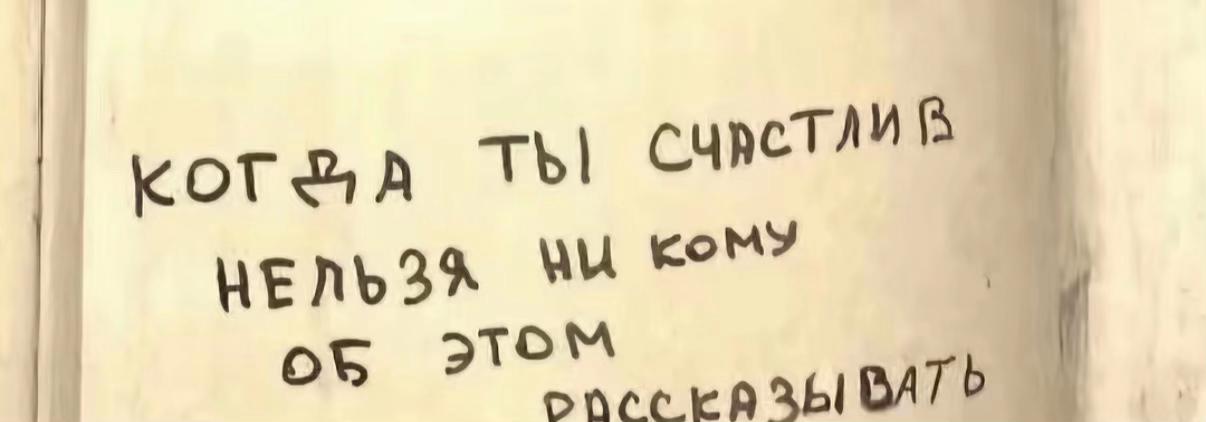 КОГДА ТЫ СЧАСТЛИВ
НЕЛЬЗЯ НИ КОМУ
ОБ ЭТОМ
РАССКАЗЫВАТЬ